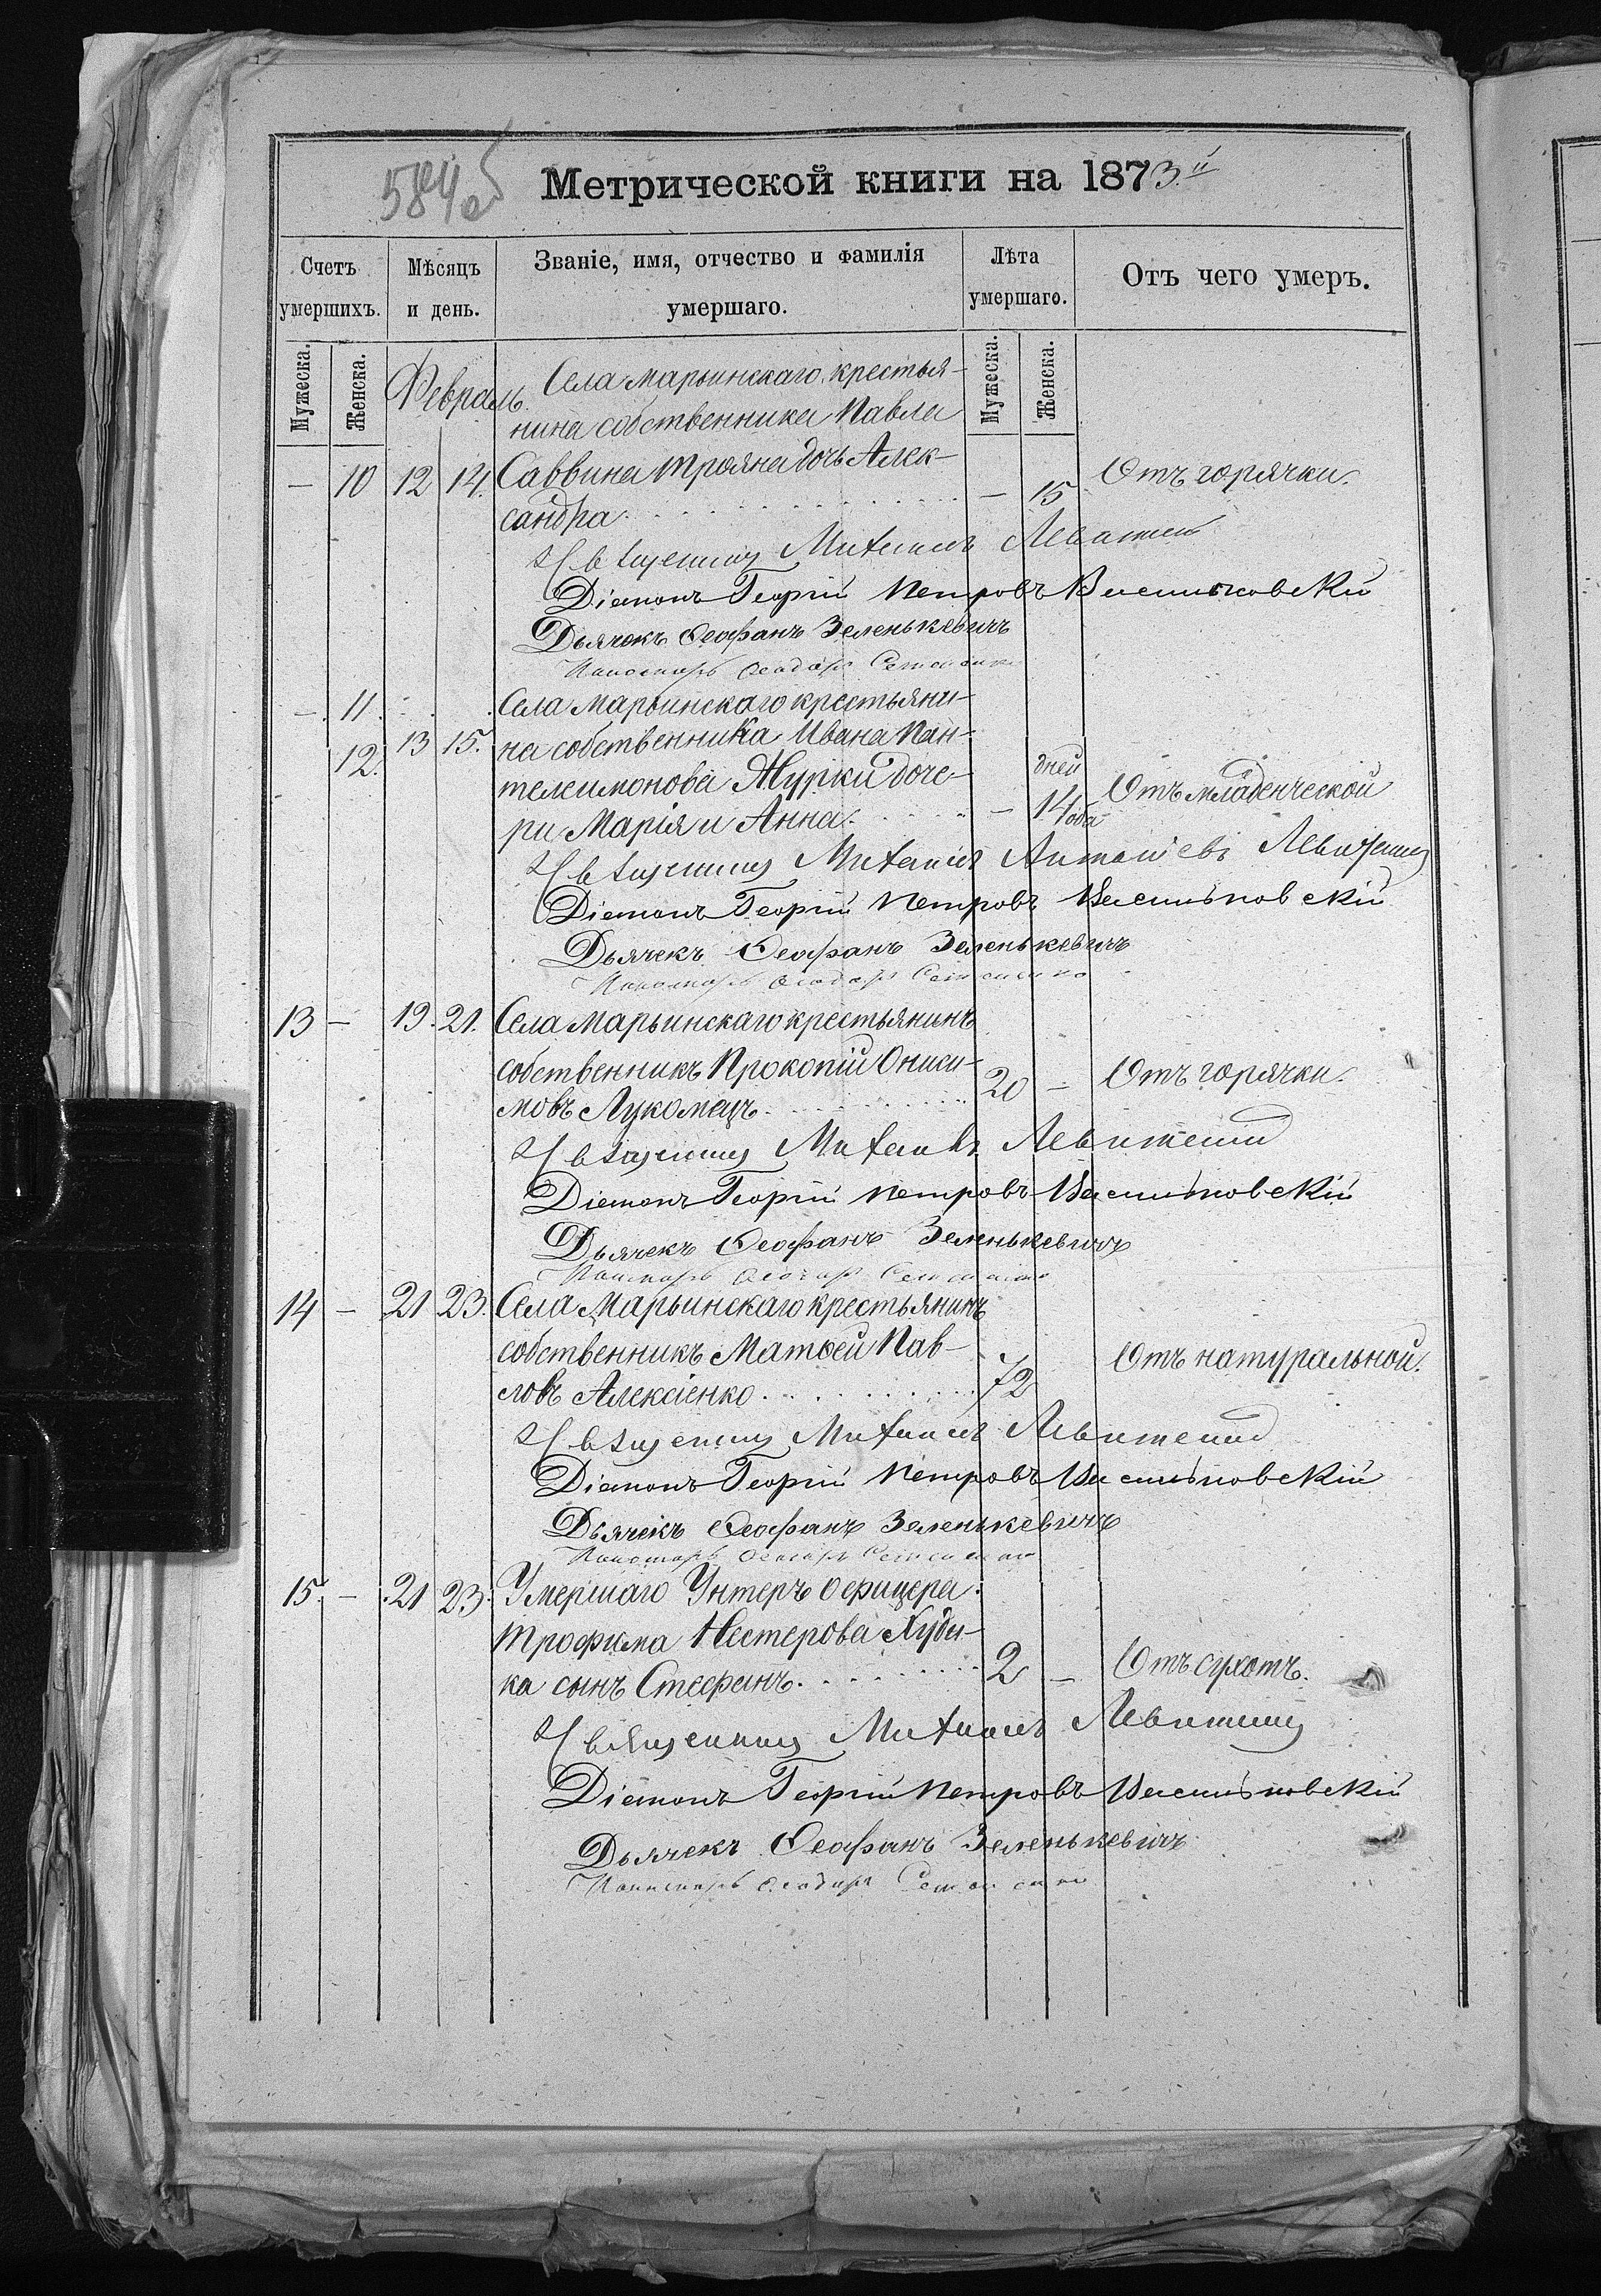 584об
Метрической книги на 1873.й
Счетъ умершихъ.
Мѣсяцъ и день.
Званіе, имя, отчество и фамилія умершаго.
Лѣта умершаго.
Отъ чего умеръ.
Мужеска.
Женска.
Мужеска.
Женска.
Февраль.
Села Марьинскаго крестья-
нина собственника Павла
— 10 12 14. Саввина Трояна дочь Алек-
сандра. — 15 Отъ горячки.
Священникъ Михаилъ
Діаконъ Георгій Петровъ Васильковскій
Дьячекъ Феофанъ Зеленькевичъ
Пономарь
— 11. Села Марьинскаго крестьяни-
12. 13 15. на собственника Ивана Пан-
телеимонова Журки доче-
ри Марія и Анна. — дней 14 оба Отъ младенческой
Священникъ Михаилъ
Діаконъ Георгій Петровъ Васильковскій
Дьячекъ Феофанъ Зеленькевичъ
Пономарь
13 — 19. 21. Села Марьинскаго крестьянинъ
собственникъ Прокопій Ониси-
мовъ Лукомецъ. 20 — Отъ горячки.
Священникъ Михаилъ
Діаконъ Георгій Петровъ Васильковскій
Дьячекъ Феофанъ Зеленькевичъ
Пономарь
14 — 21 23. Села Марьинскаго крестьянинъ
собственникъ Матѳей Пав-
ловъ Алексіенко. 72 Отъ натуральной.
Священникъ Михаилъ
Діаконъ Георгій Петровъ Васильковскій
Дьячекъ Феофанъ Зеленькевичъ
Пономарь
15. — 21 23. Умершаго Унтеръ офицера
Трофима Нестерова Худи-
ка сынъ Стефанъ. 2 — Отъ сухотъ.
Священникъ Михаилъ
Діаконъ Георгій Петровъ Васильковскій
Дьячекъ Феофанъ Зеленькевичъ
Пономарь